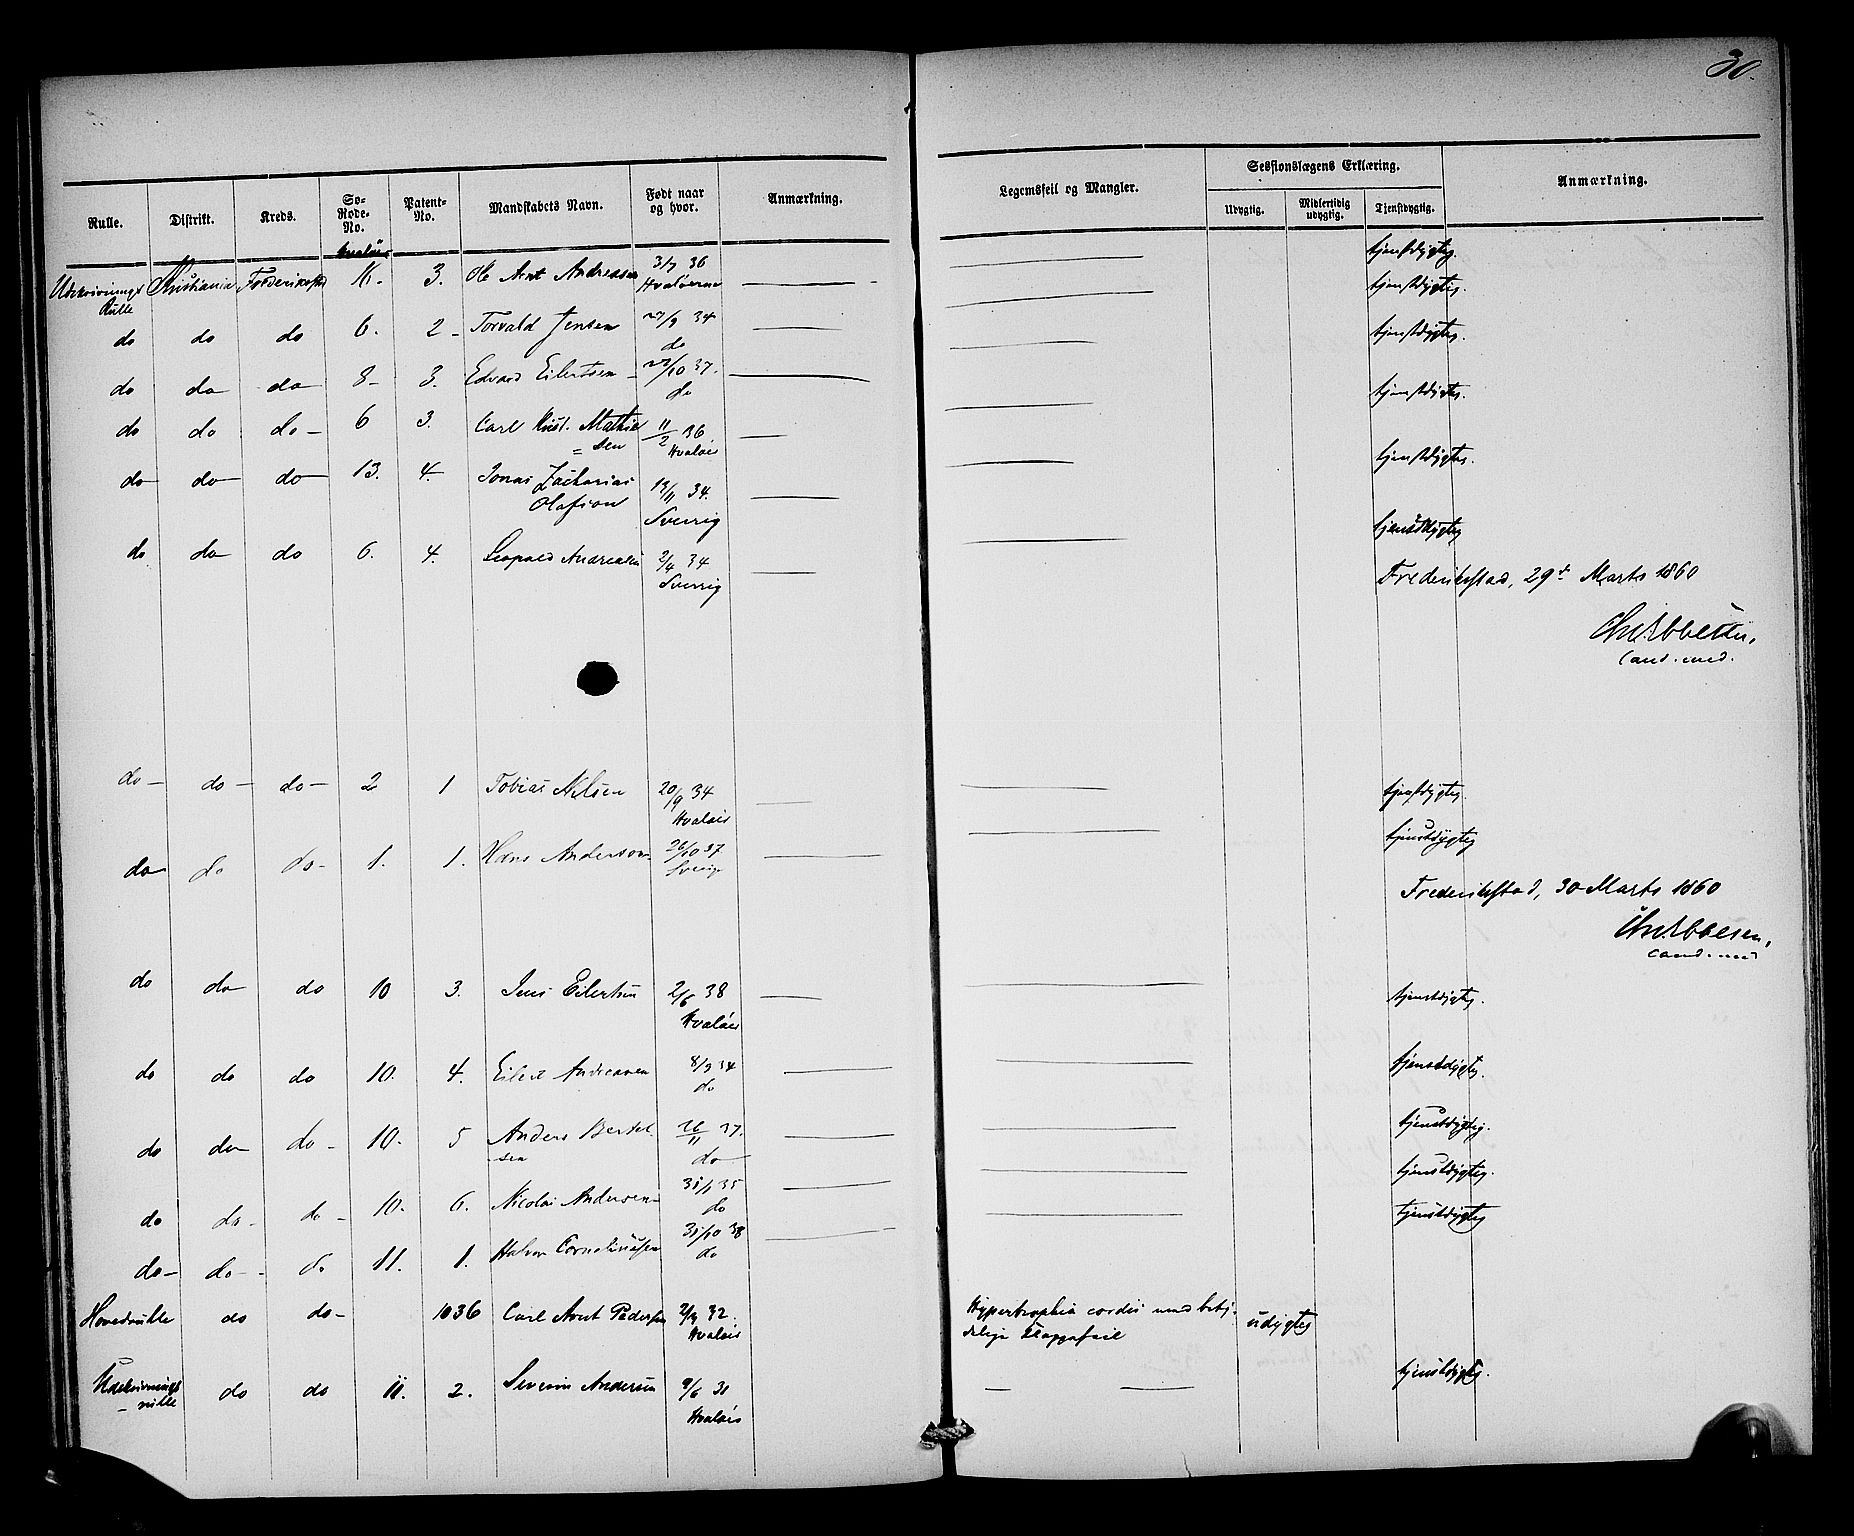 30.
Rulle. Distrikt. Kreds. So-Rode-No. Patent-No. Mandskabets Navn. Født naar og hvor. Anmærkning. Legemsfeil og Mangler. Sessionslægens Erklæring. Anmærkning.
Udygtig. Midlertidig udygtig. Tjenstdygtig.
Hvalöe
Udskrivnings Rulle Kristiania Frederikstad 3. Ole Arnt Andreasen 36 Hvalöerne tjenstdygtig.
tjenstdygtig.
do do do 6. 2 Torvald Jensen 27/9 34 do tjenstdygtig.
do do do 8 3. Edvard Eilertsen 37. do tjenstdygtig.
do do do 6 3. Carl Krist. Mathie=sen 11/2 36 Hvalöes tjenstdygtig.
do do do 13. 4. Jonas Zacharias Olafson 19/11 34. Sverrig
do do do 6. 4. Leopold Andreasen 2/4 34 Sverrig tjenstdygtig
Frederikstad, 29de Marts 1860
cand. med.
do do do 2 1 Tobias Nilsen 20/9 34 Hvalöes tjenstdygtig.
do do do 1. 1. Hans Anderson 26/10 37 Sverige tjenstdygtig
Frederikstad, 30 Marts 1860
cand. med
do do do 10 3. Jens Eilertsen 2/6 38 Hvalöes tjenstdygtig.
do do do 10. 4. Eilert Andreasen 8/9 34 do tjenstdygtig.
do do do 10. 5 Anders Bertel-sen 26/11 37. do tjenstdygtig.
do do do 10. 6. Nicolai Andersen 31/1 35 do tjenstdygtig.
do do do 11. 1. Halvor Corneliussen 31/10 38 do tjenstdygtig
Hovedrulle do do 1036 Carl Arnt Pedersen 2/9 32. Hvalöes Hypertrophia cordis med betydelige Klappefeil udygtig
Udskrivningsrulle do do 11. 2. Severin Andersen 9/6 31 Hvalöes tjenstdygtig.